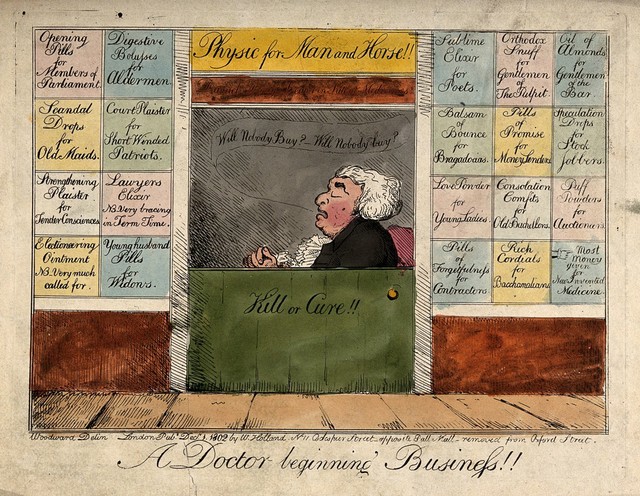 Physic for Man and Horse!!
Will Nobody Buy? – Will Nobody buy?
Kill or Cure!!
Opening
Pills
for
Members of
Parliament.
Digestive
Bolusses
for
Aldermen.
Scandal
Drops
for
Old Maids.
Court Plaister
for
Short Winded
Patriots.
Strengthening
Plaister
for
Tender Consciences
Lawyers
Elixir
NB. Very bracing
in Term Time.
Electioneering
Ointment
NB. Very much
called for.
Young husband
Pills
for
Widows.
Sublime
Elixir
for
Poets.
Orthodox
Snuff
for
Gentlemen
of
The Pulpit.
Oil of
Almonds
for
Gentlemen
of the
Bar.
Balsam
of
Bounce
for
Bragadoais.
Pills
of
Promise
for
Money Lenders
Speculation
Drops
for
Stock
jobbers.
Love Powder
for
Young Ladies.
Consolation
Comfits
for
Old Batchellors.
Puff
Powders
for
Auctioneers.
Pills
of
Forgetfulness
for
Contractors
Rich
Cordials
for
Bacchanalians
Most
money
given
for
New invented
Medicine.
Woodward Delin London Pub. Decr. 1. 1802 by W. Holland, No. 11 Cockspur Street opposite Pall-Mall – removed from Oxford Street.
A Doctor beginning Business!!